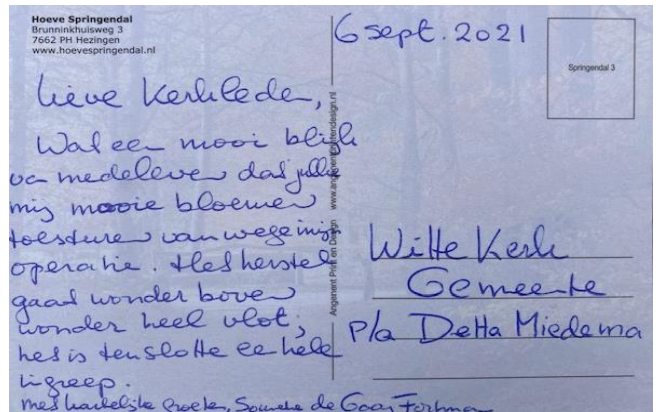 Hoeve Springendal
Brunninkhuisweg 3
7662 PH Hezingen
www.hoevespringendal.nl
6 sept. 2021
Springendal 3
Lieve Kerkleden,
Wat een mooi blijk
van medeleven dat jullie
mij mooie bloemen
toesturen vanwege mijn
operatie. Het herstel
gaat wonder boven
wonder heel vlot,
het is tenslotte een hele
ingreep.
met hartelijke groeten, de Gaay Fortman
Angenent Print en Design www.angenentprintendesign.nl
Witte Kerk
Gemeente
p/a Detta Miedema